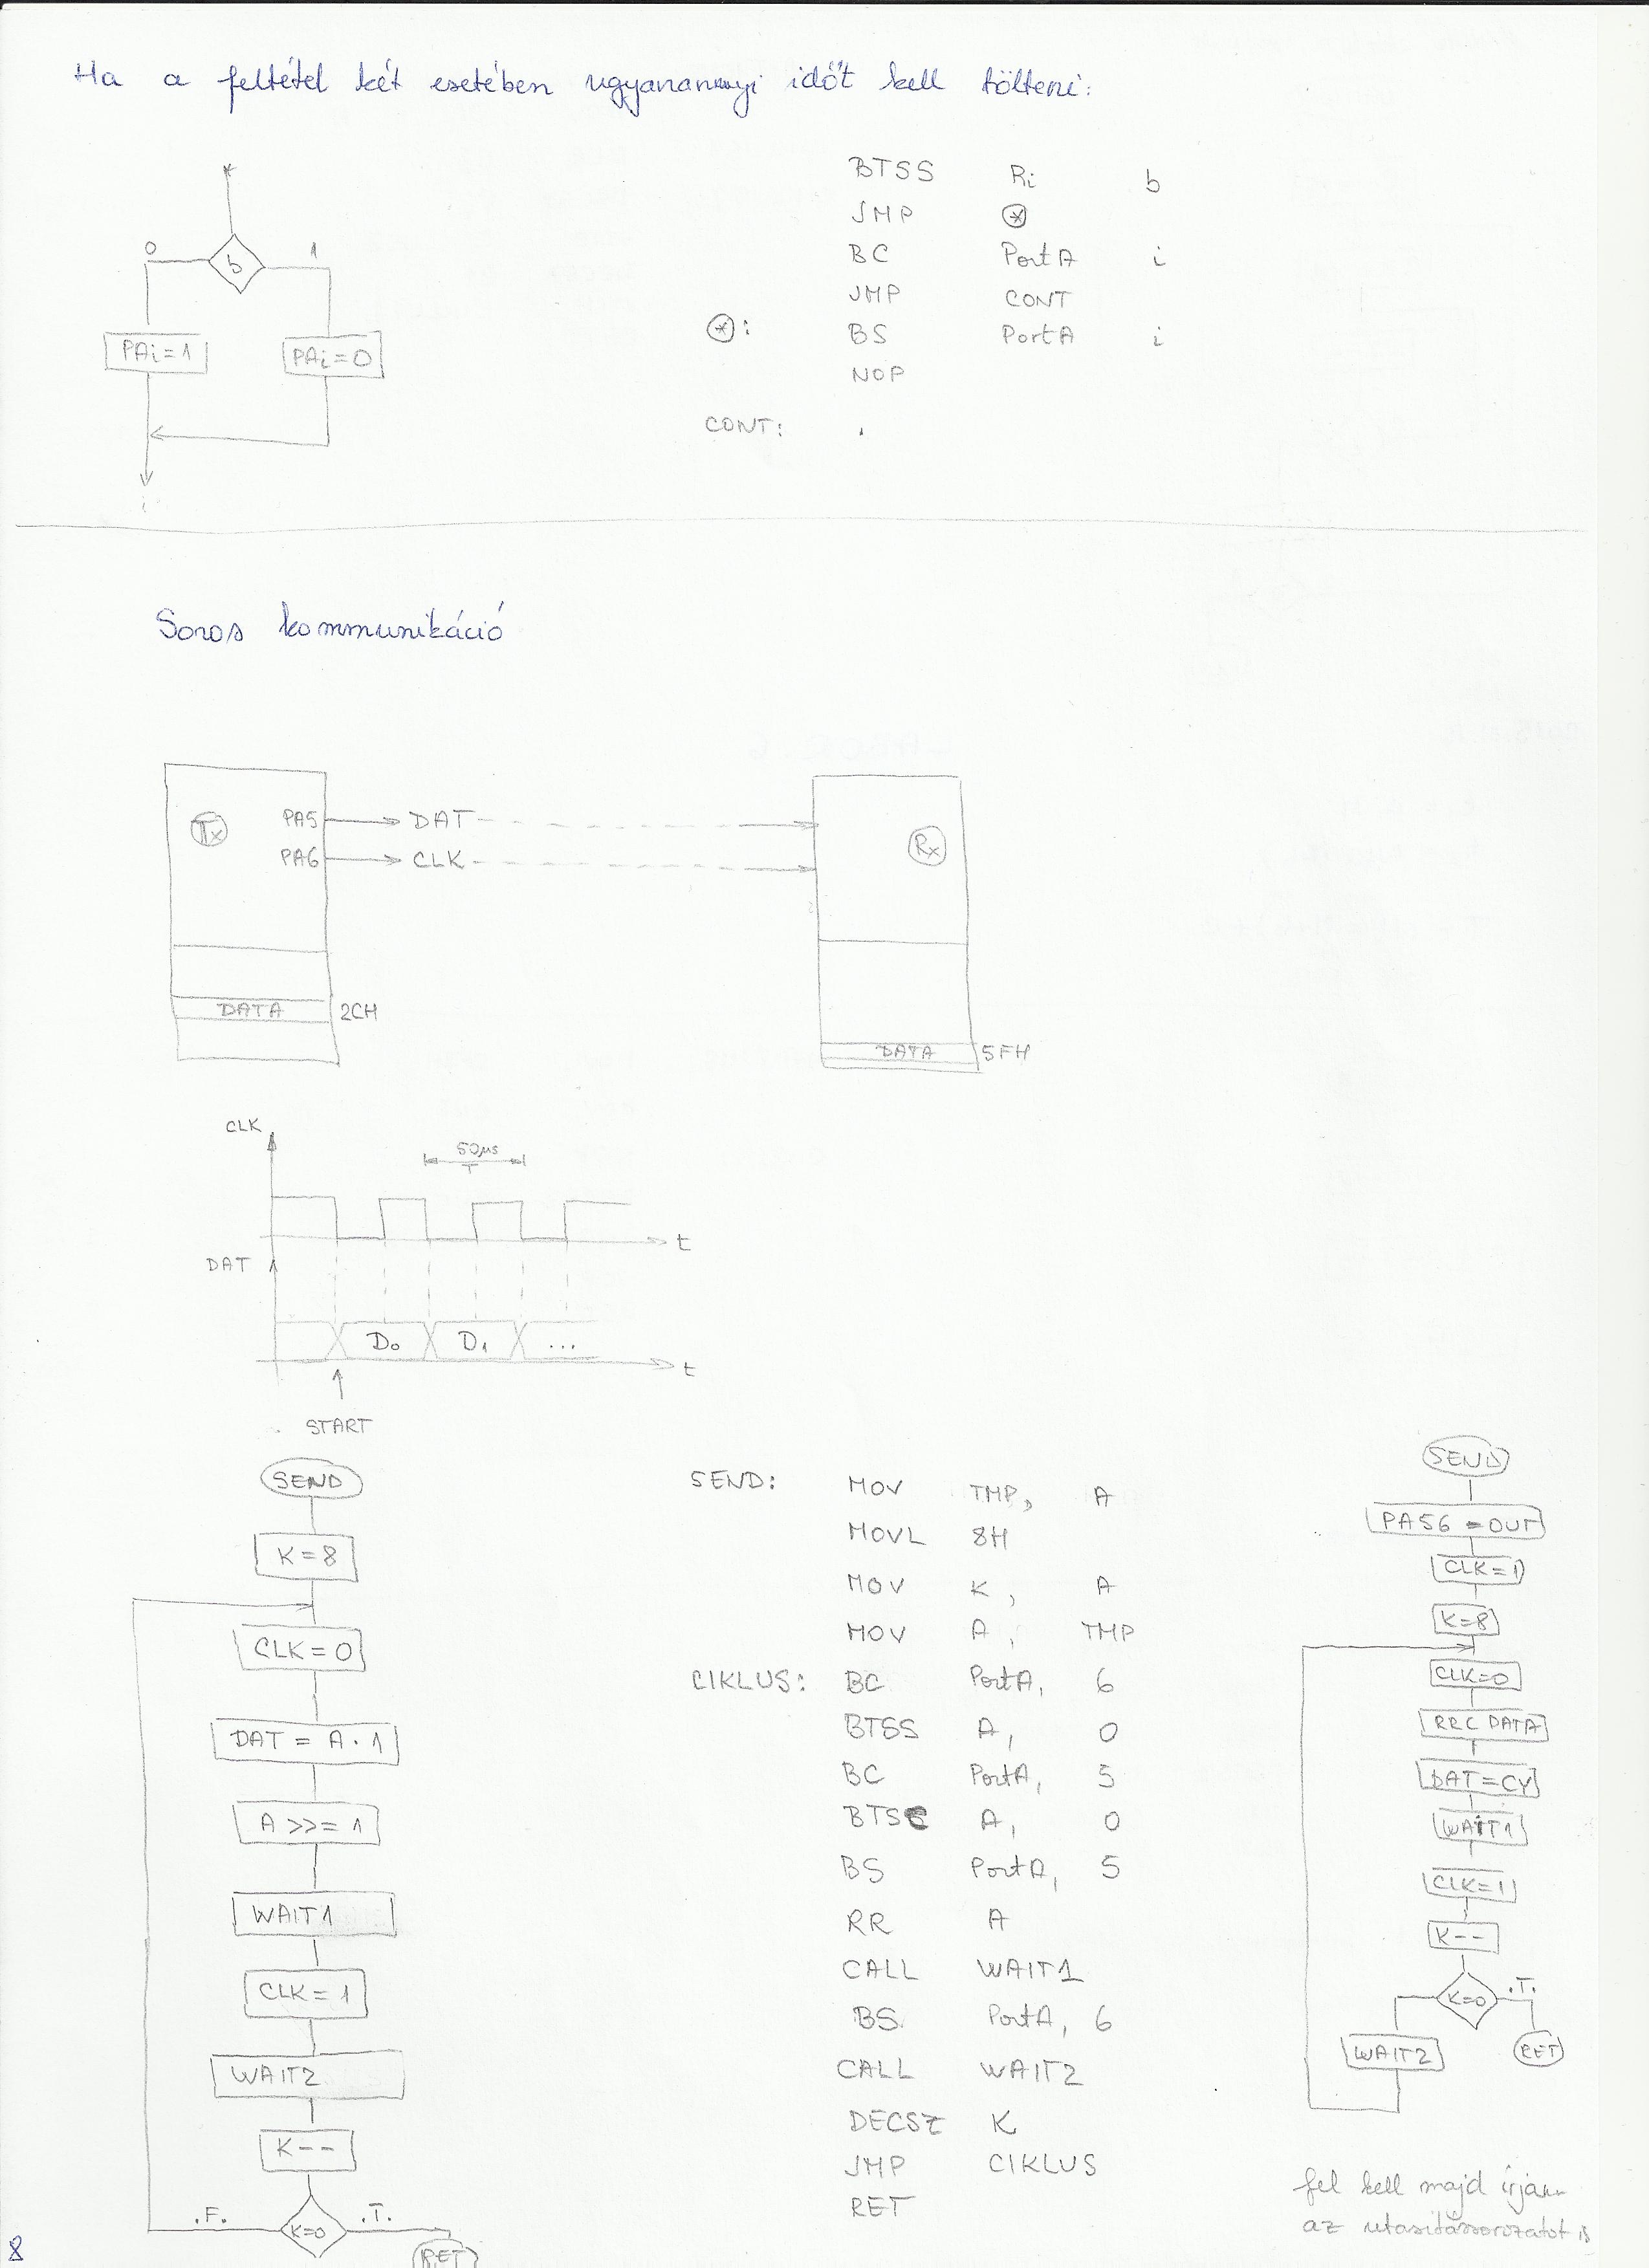 Ha a feltétel két esetében ugyanannyi időt kell tölteni:
0 b 1
PAi=1 PAi=0
BTSS Ri b
JMP ⊛
BC PortA i
JMP CONT
⊛: BS PortA i
NOP
CONT: .
Soros kommunikáció
Tx PA5 DAT Rx
PA6 CLK
DATA 2CH
DATA 5FH
CLK
50µs
T
t
DAT
D0 D1 ...
t
START
SEND
K=8
CLK=0
DAT = A.1
A >>= 1
WAIT1
CLK=1
WAIT2
K--
.F. K=0 .T.
RET
SEND: MOV TMP, A
MOVL 8H
MOV K, A
MOV A, TMP
CIKLUS: BC PortA, 6
BTSS A, 0
BC PortA, 5
BTSC A, 0
BS PortA, 5
RR A
CALL WAIT1
BS PortA, 6
CALL WAIT2
DECSZ K
JMP CIKLUS
RET
SEND
PA56 = OUT
CLK=1
K=8
CLK=0
RRC DATA
DAT=CY
WAIT1
CLK=1
K--
K=0 .T.
WAIT2 RET
fel kell majd írjam
az utasítássorozatot is
8